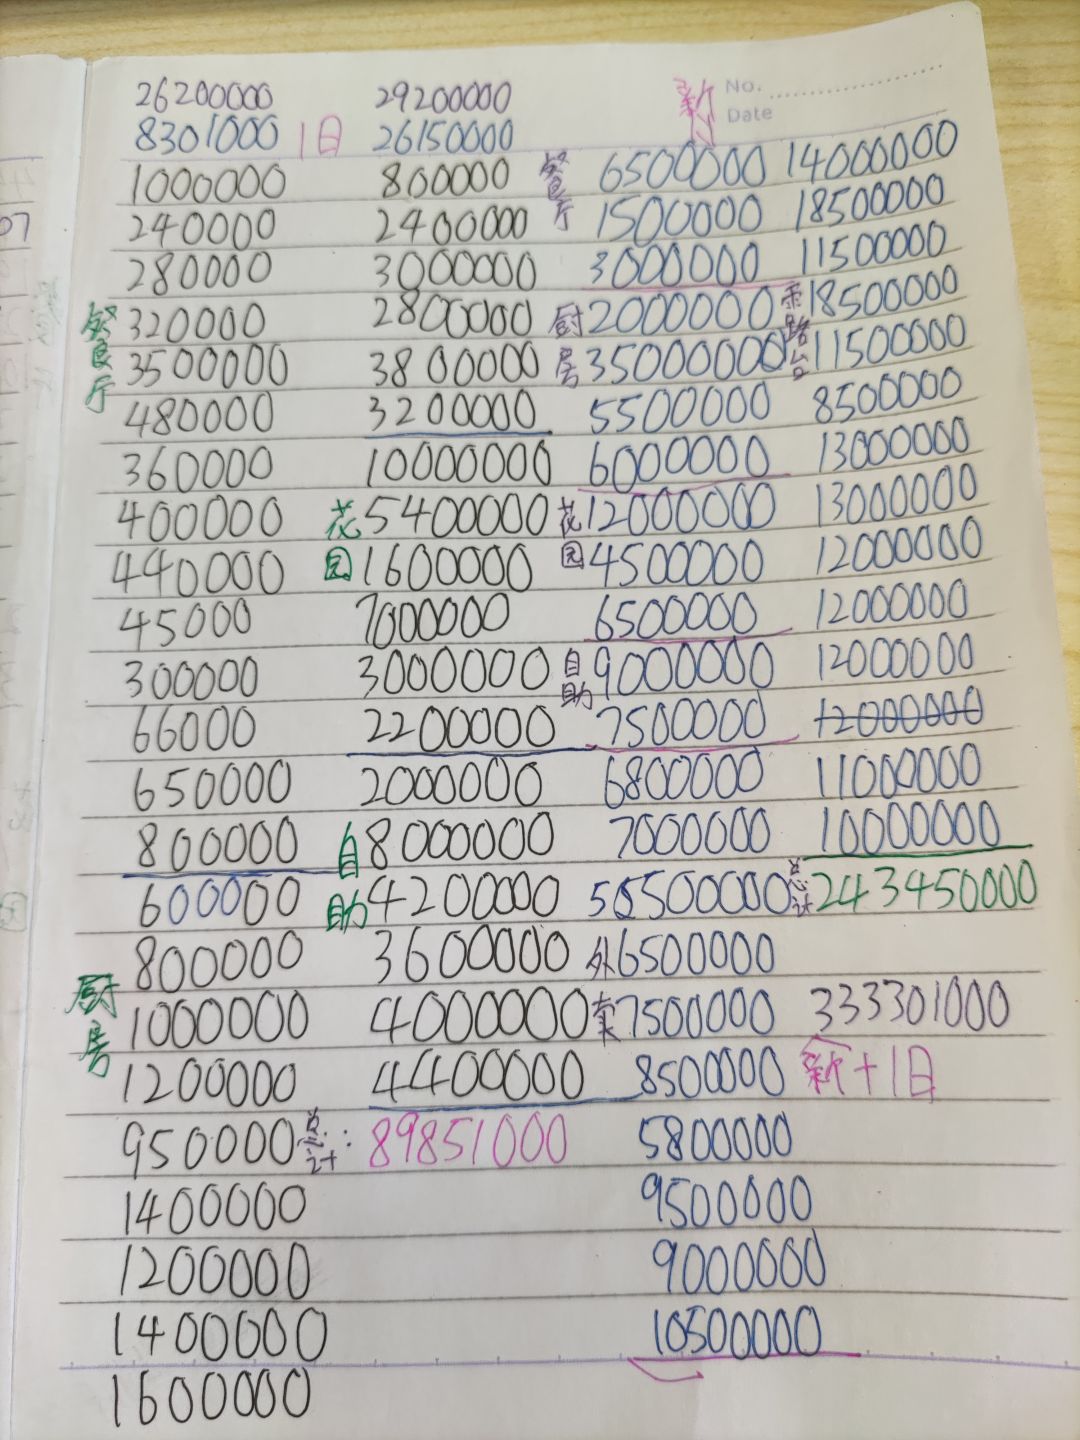 No.
Date
新
26200000
8301000
旧
29200000
26150000
餐厅
1000000
240000
280000
320000
3500000
480000
360000
400000
440000
45000
300000
66000
650000
800000
厨房
600000
800000
1000000
1200000
950000
1400000
1200000
1400000
1600000
800000
2400000
3000000
2800000
3800000
3200000
花园
10000000
5400000
1600000
7000000
3000000
2200000
自助
2000000
8000000
4200000
3600000
4000000
4400000
总计:
89851000
餐厅
6500000
1500000
3000000
厨房
2000000
35000000
5500000
6000000
花园
12000000
4500000
6500000
自助
9000000
7500000
外卖
6800000
7000000
6500000
7500000
8500000
5800000
9500000
9000000
10500000
露台
14000000
18500000
11500000
18500000
11500000
8500000
13000000
13000000
12000000
12000000
12000000
12000000
11000000
10000000
总计
243450000
333301000
新+旧